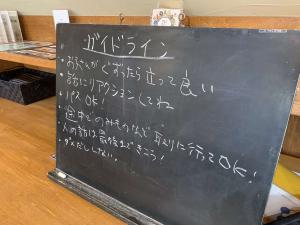 ガイドライン
・お子さんが ぐずったら 立って 良い
・話にリアクションしてね
・パス OK!
・途中でのみものなど 取りに行ってOK!
・人の話は最後まできこう!
・ダメだししない。